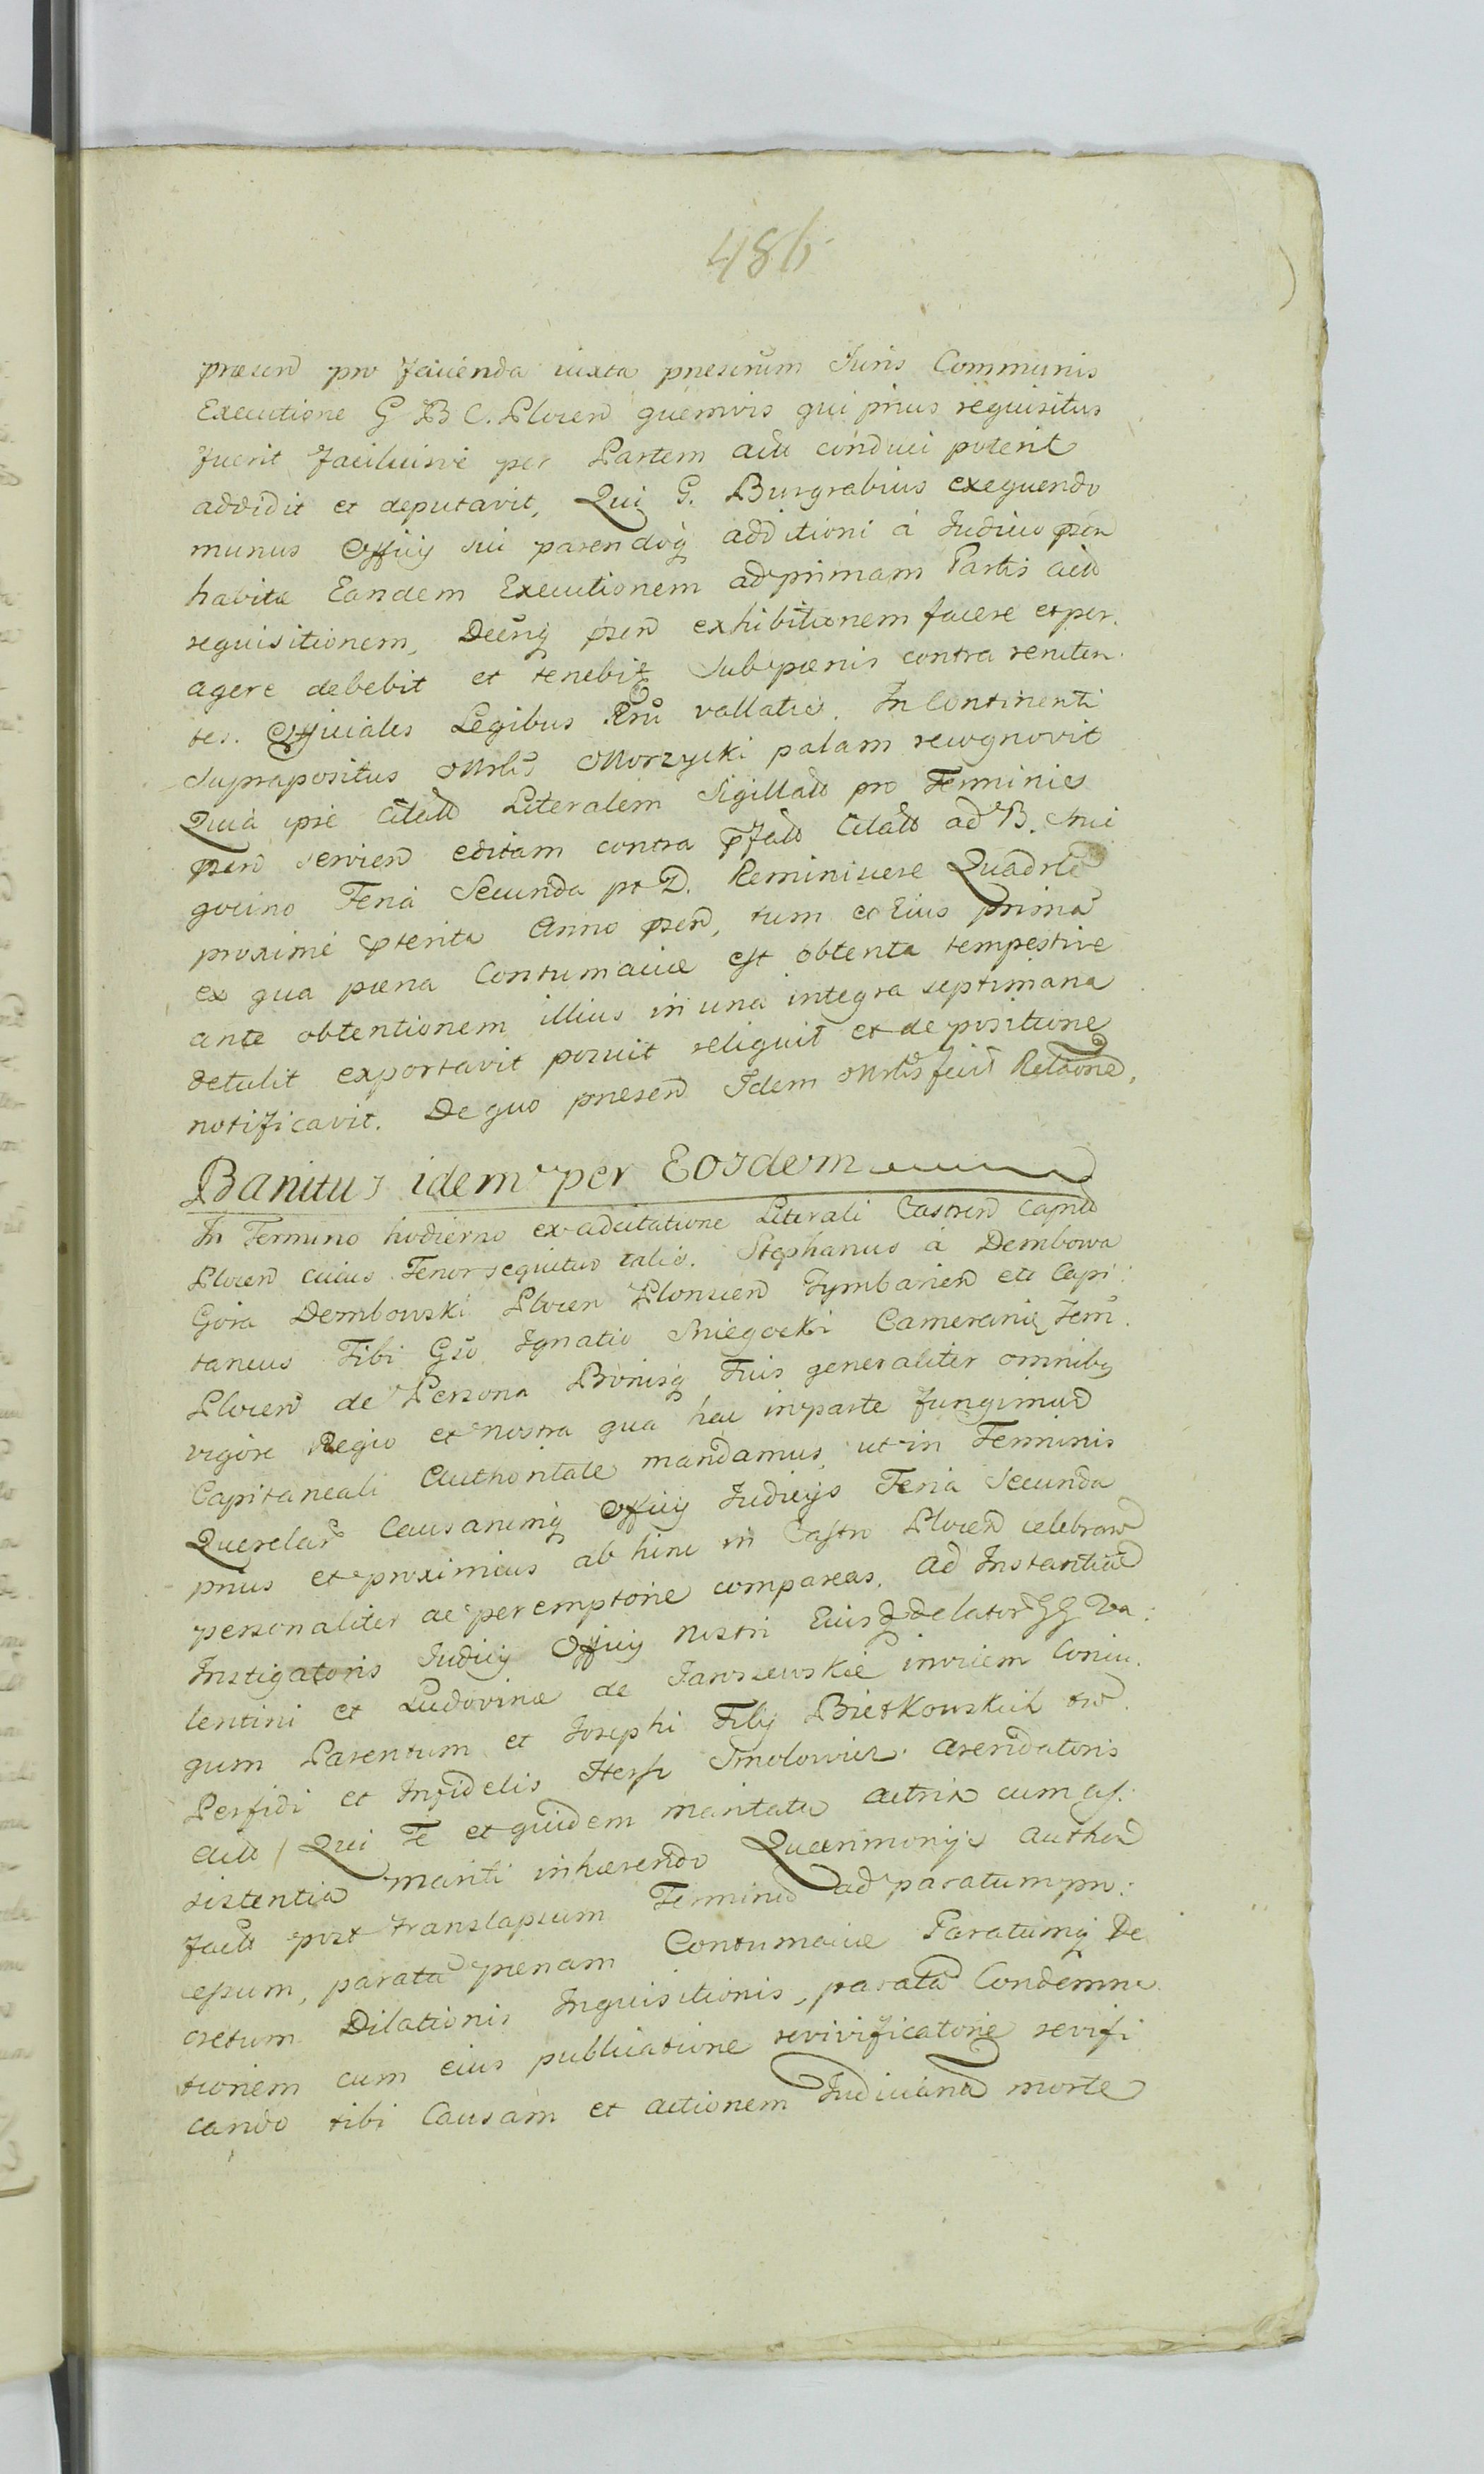 486
præsen pro facienda iuxta præscrium Juris Communis
Executione G B C. Plocen quemvis qui prius requisitus
fuerit faciliusve per Partem act conduci poterit
addidit et deputavit, Qui G. Burgrabius exequendo
munus Officij sui parendoq additioni à Judicio præn
habitæ Eandem Executionem ad primam Partis act
requisitionem, Decrīq præn exhibitionem facere et per.
agere debebit et tenebit sub pœnis contra reniten.
tes. Officiales Legibus Rni vallatis. In Continenti
Suprapositus Mrlis Morzycki palam recognovit
Quià ipse Citatt Literalem Sigillatt pro Terminis
præn servien editam contra præfatt Citatt ad B. Snie
gocino Feria Secunda pt D. Reminiscere Quadrle
proximè præterita Anno præn, tum et Eius prima
ex qua pœna Contumaciæ est obtenta tempestive
ante obtentionem illius in una integra septimana
detulit exportavit posuit reliquit et de positione
notificavit. De quo præsen Idem Mrlis fecit Relaone,
Banitus idem per Eosdem
In Termino hodierno ex adcitatione Literali Castren Capnli
Plocen cuius Tenor sequitur talis. Stephanus à Dembowa
Gora Dembowski Plocen Plonscen Tymbarien etc Capi:
taneus Tibi Gso Ignatio Sniegocki Camerario Terri.
Plocen de Persona Bonisq Tuis generaliter omnibq
vigore Regio et nostra qua hac in parte fungimur
Capitaneali Authoritate mandamus, ut in Terminis
Querelar Causarumq Officij Judicijs Feria Secunda
prius et proximius ab hinc in Castro Plocen celebran
personaliter ac peremptorie compareas. ad Instantia
Instigatoris Judicij Officij nostri Eiusq delator GG Va:
lentini et Ludovinæ de Jaroszewskie invicem Coniu.
gum Parentum et Josephi Filij Bietkowskich
Perfidi et Infidelis Hersz Smolowicz arendatoris
act / Qui Te et quidem maritata actrix cum as.
sistentia mariti inhærendo Quærimonijs author
factt post translapsum Termino ad paratum pro:
cessum, parata pœnam Contumaciæ Paratumq De
cretum Dilationis Inquisitionis, parata Condemna
tionem cum eius publicatione revivificatorie revifi
cando tibi Causam et actionem Judiciana morte